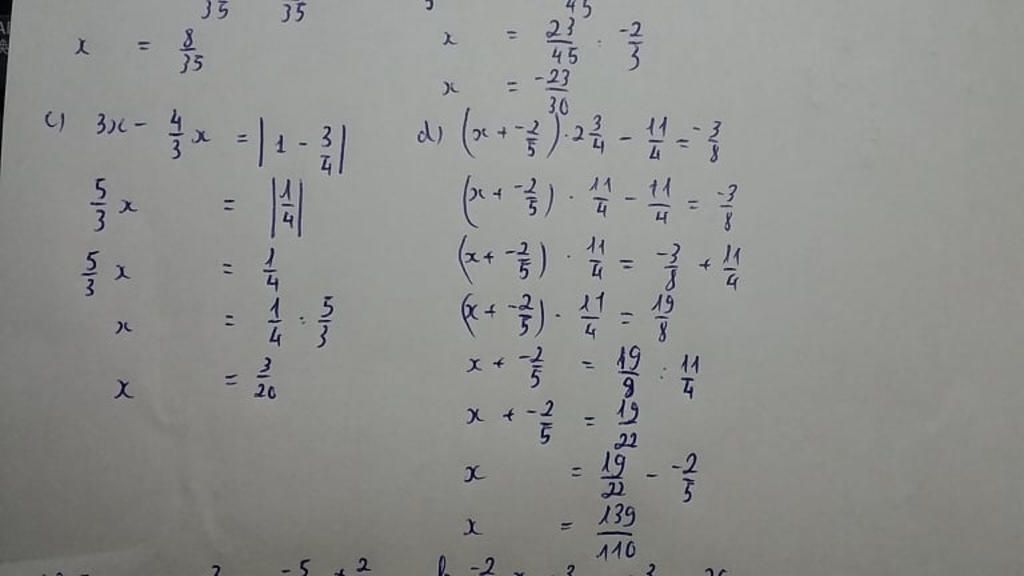 35 35
x = 8/35
c) 3x - 4/3 x = |1 - 3/4|
5/3 x = |1/4|
5/3 x = 1/4
x = 1/4 : 5/3
x = 3/20
45
x = 23/45 : -2/3
x = -23/30
d) (x + -2/5) · 2 3/4 - 11/4 = -3/8
(x + -2/5) · 11/4 - 11/4 = -3/8
(x + -2/5) · 11/4 = -3/8 + 11/4
(x + -2/5) · 11/4 = 19/8
x + -2/5 = 19/8 : 11/4
x + -2/5 = 19/22
x = 19/22 - -2/5
x = 139/110